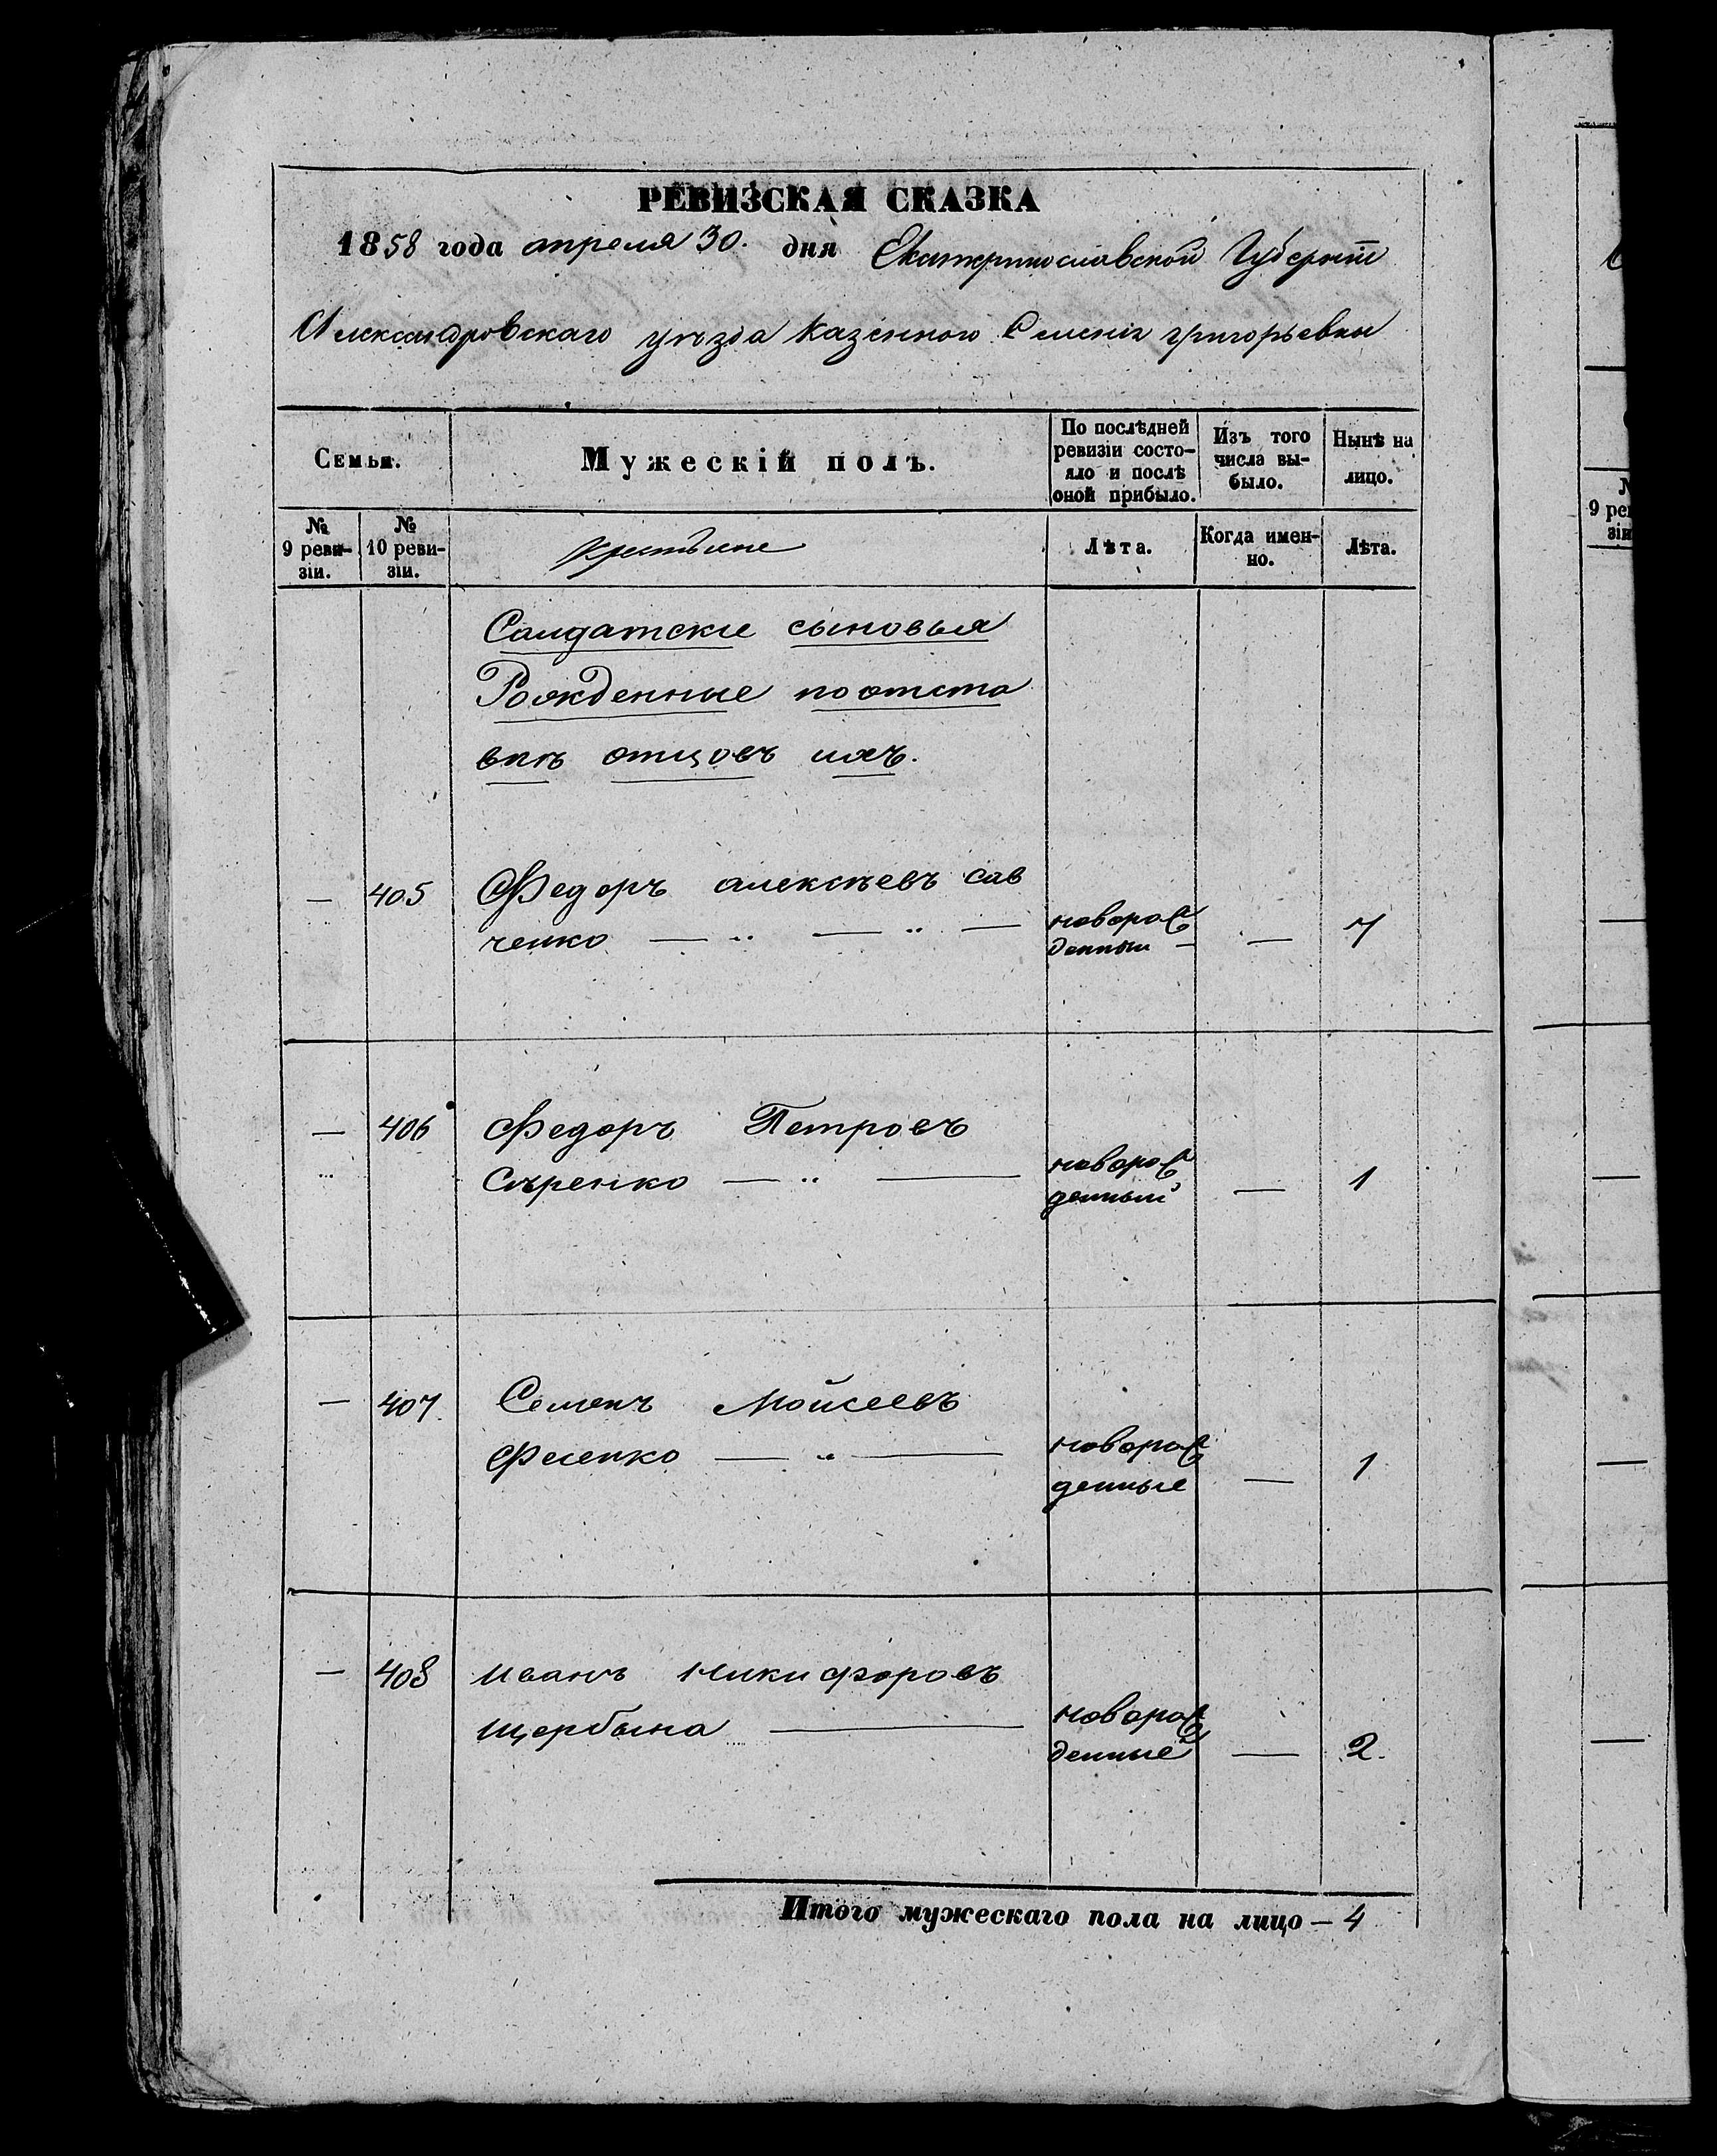 РЕВИЗСКАЯ СКАЗКА
1858 года апреля 30. дня Екатеринославской Губернiи
Александровскаго уѣзда казенного Селенiя григорьевки
Семьи.
Мужескiй полъ.
По послѣдней ревизiи состо-
яло и послѣ
оной прибыло.
Изъ того
числа вы-
было.
Нынѣ на
лицо.
№
9 реви-
зiи.
№
10 реви-
зiи.
крестьяне
Лѣта.
Когда имен-
но.
Лѣта.
Салдатские сыновья
Рожденные по отста
вкѣ отцовъ ихъ.
— 405 Федоръ алексѣевъ сав
ченко — " — " — новорож
денный — — 7
— 406 Федоръ Петровъ
Сѣренко — " — новорож
денный — 1
— 407. Семенъ Мойсеевъ
Фесенко — " — новорож
денные — 1
— 408 иванъ никифоровъ
щербина — новорож
денные — 2.
Итого мужескаго пола на лицо — 4
№
9 рев
зiи